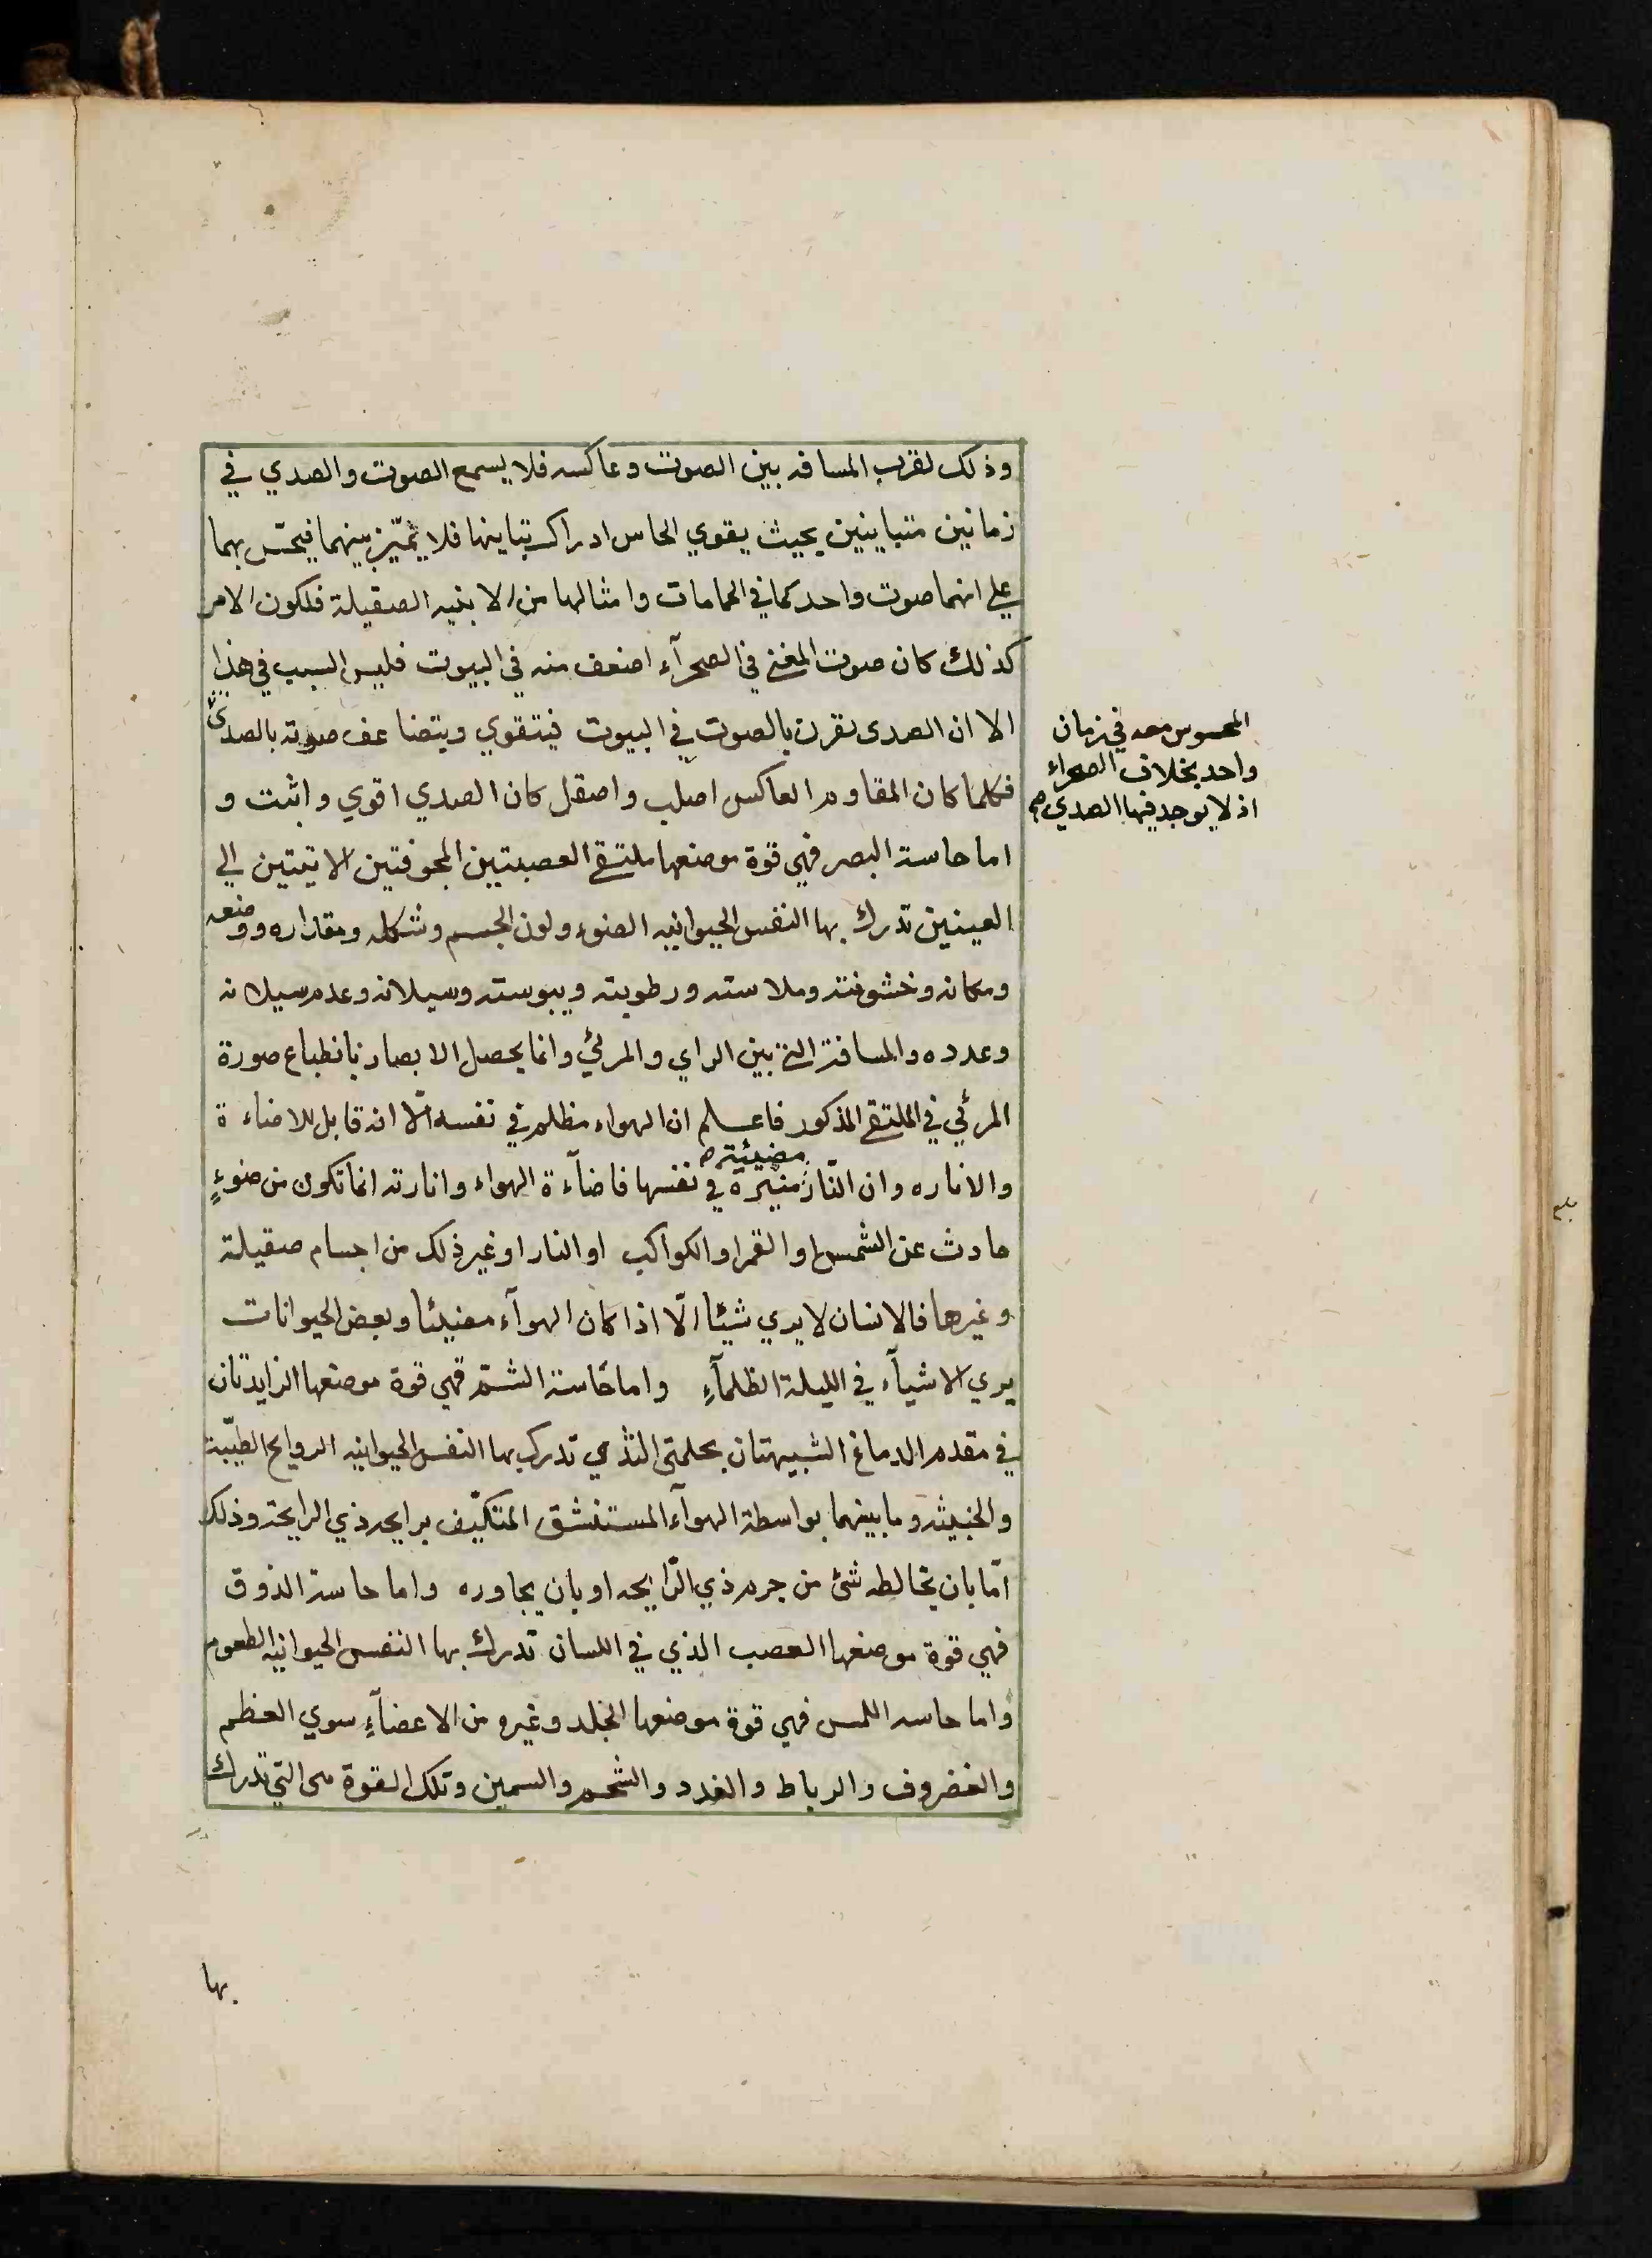 وذلك لقرب المسافه بين الصوت وعاكسه فلا يسمع الصوت والصدي في
زمانين متباينين بحيث يقوي الحاس ادراك تباينها فلا يميّز بينهما فيحسّ بهما
علي انهما صوت واحد كما في الحمامات وامثالها من الابنيه الصقيلة فلكون الامر
كذلك كان صوت المغني في الصحرآء اضعف منه في البيوت فليس السبب في هذا
الا ان الصدى يقرن بالصوت في البيوت فيتقوي ويتضاعف صوته بالصدى
المحسوس معه في زمان
واحد بخلاف الصحراء
اذ لا يوجد فيها الصدي صح
فكلما كان المقاوم العاكس اصلب واصقل كان الصدي اقوي واثبت و
اما حاسة البصر فهي قوة موضعها ملتقي العصبتين المجوفتين الاتيتين الي
العينين تدرك بها النفس الحيوانيه الضوء ولون الجسم وشكله ومقداره ووضعه
ومكانه وخشونته وملاسته ورطوبته ويبوسته وسيلانه وعدم سيلانه
وعدده والمسافة التي بين الراي والمرئي وانما يحصل الابصار بانطباع صورة
المرئي في الملتقي المذكور فاعلم ان الهواء مظلم في نفسه الّا انه قابل للاضاءة
والاناره وان النّار مضيئة منيرة في نفسها فاضآءة الهواء وانارته انما تكون من ضوءٍ
حادث عن الشمس او القمر او الكواكب او النار او غير ذلك من اجسام صقيلة
وغيرها فالانسان لا يري شيئا الّا اذا كان الهوآء مضيئا وبعض الحيوانات
يري الاشيآء في الليلة الظلمآءِ واما حاسة الشمّ فهي قوة موضعها الزايدتان
في مقدم الدماغ الشبيهتان بحلمتي الثدي تدرك بها النفس الحيوانيه الروايح الطيّبة
والخبيثه وما بينهما بواسطة الهوآء المستنشق المتكيّف برايحه ذي الرايحة وذلك
امّا بان يخالطه شئ من جرم ذي الرّايحه او بان يجاوره واما حاسة الذوق
فهي قوة موضعها العصب الذي في اللسان تدرك بها النفس الحيوانيه الطعوم
واما حاسه اللمس فهي قوة موضعها الجلد وغيره من الاعضآءِ سوي العظم
والغضروف والرباط والغدد والشحم والسمين وتلك القوة هى التي تدرك
بها